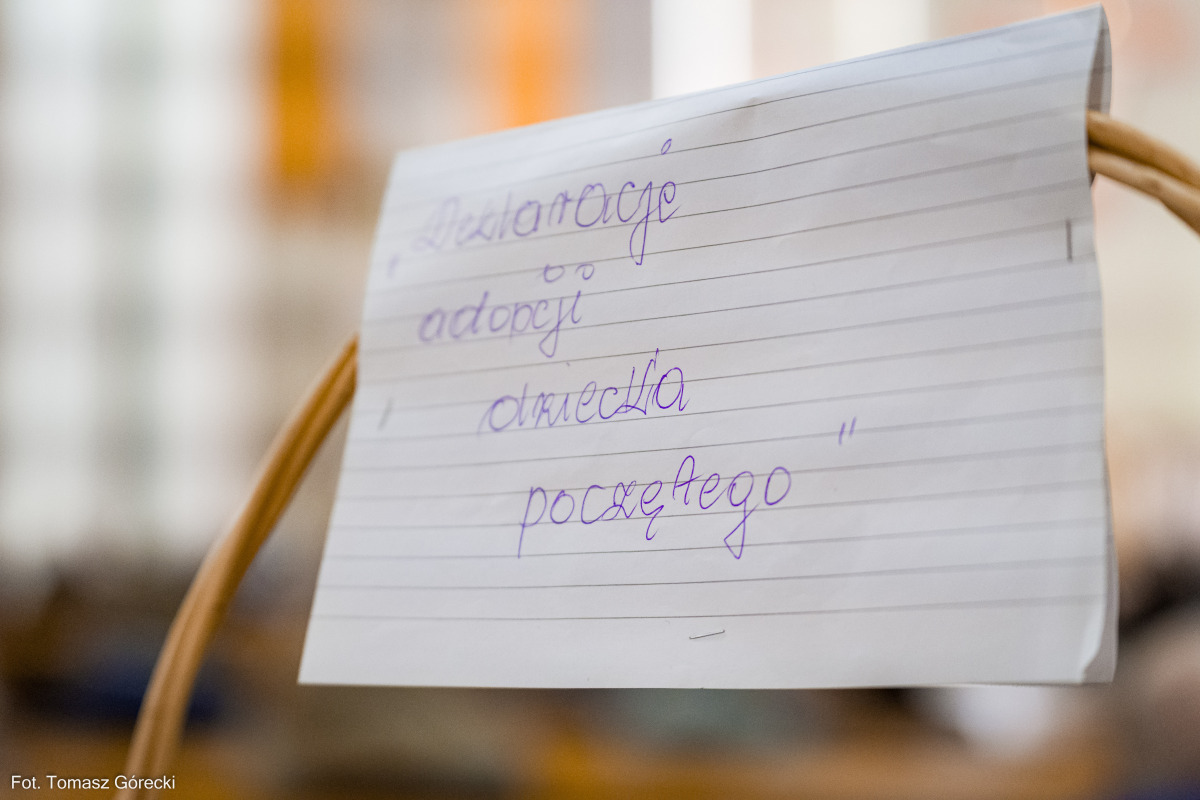 „Deklaracje
adopcji
dziecka
poczętego"
Fot. Tomasz Górecki